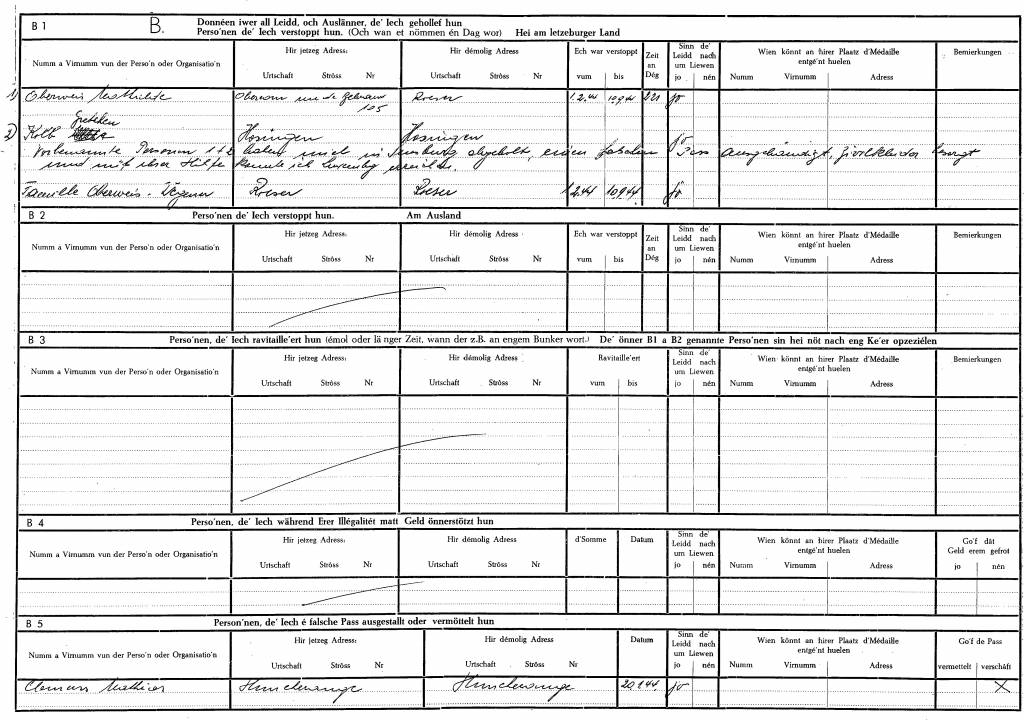 B 1 B. Donnéen iwer all Leidd, och Auslänner, de' Iech gehollef hun
Perso'nen de' Iech verstoppt hun. (Och wan et nömmen én Dag wor) Hei am letzeburger Land
Numm a Virnumm vun der Perso'n oder Organisatio'n Hir jetzeg Adress: Hir démolig Adress Ech war verstoppt Zeit an Dég Sinn de' Leidd nach um Liewen Wien könnt an hirer Plaatz d'Médaille entgé'nt huelen Bemierkungen
Urtschaft Ströss Nr Urtschaft Ströss Nr vum bis jo nén Numm Virnumm Adress
1) Oberweis Mathilde 105 Roeser 1.2.44 10.9.44 221 jo
Gretchen
2) Kolb Hosingen Hosingen jo
Vorbenannte Personen 1+2 haben mich in abgeholt, einen falschen Pass ausgehändigt, Zivilkleider besorgt
und mit ihrer Hilfe konnte ich Luxemburg erreichen.
Familie Oberweis - Wagener Roeser Roeser 1.2.44 10.9.44 jo
B 2 Perso'nen de' Iech verstoppt hun. Am Ausland
Numm a Virnumm vun der Perso'n oder Organisatio'n Hir jetzeg Adress: Hir démolig Adress Ech war verstoppt Zeit an Dég Sinn de' Leidd nach um Liewen Wien könnt an hirer Plaatz d'Médaille entgé'nt huelen Bemierkungen
Urtschaft Ströss Nr Urtschaft Ströss Nr vum bis jo nén Numm Virnumm Adress
B 3 Perso'nen, de' Iech ravitaille'ert hun (émol oder länger Zeit, wann der z.B. an engem Bunker wort.) De' önner B1 a B2 genannte Perso'nen sin hei nöt nach eng Ke'er opzeziélen
Numm a Virnumm vun der Perso'n oder Organisatio'n Hir jetzeg Adress: Hir démolig Adress Ravitaille'ert Sinn de' Leidd nach um Liewen Wien könnt an hirer Plaatz d'Médaille entgé'nt huelen Bemierkungen
Urtschaft Ströss Nr Urtschaft Ströss Nr vum bis jo nén Numm Virnumm Adress
B 4 Perso'nen, de' Iech während Erer Illégalitét matt Geld önnerstötzt hun
Numm a Virnumm vun der Perso'n oder Organisatio'n Hir jetzeg Adress: Hir démolig Adress d'Somme Datum Sinn de' Leidd nach um Liewen Wien könnt an hirer Plaatz d'Médaille entgé'nt huelen Go'f dât Geld erem gefrot
Urtschaft Ströss Nr Urtschaft Ströss Nr jo nén Numm Virnumm Adress jo nén
B 5 Person'nen, de' Iech é falsche Pass ausgestallt oder vermöttelt hun
Numm a Virnumm vun der Perso'n oder Organisatio'n Hir jetzeg Adress: Hir démolig Adress Datum Sinn de' Leidd nach um Liewen Wien könnt an hirer Plaatz d'Médaille entgé'nt huelen Go'f de Pass
Urtschaft Ströss Nr Urtschaft Ströss Nr jo nén Numm Virnumm Adress vermettelt verschäft
Clemens Mathias Huncherange Huncherange 20.1.44. jo X